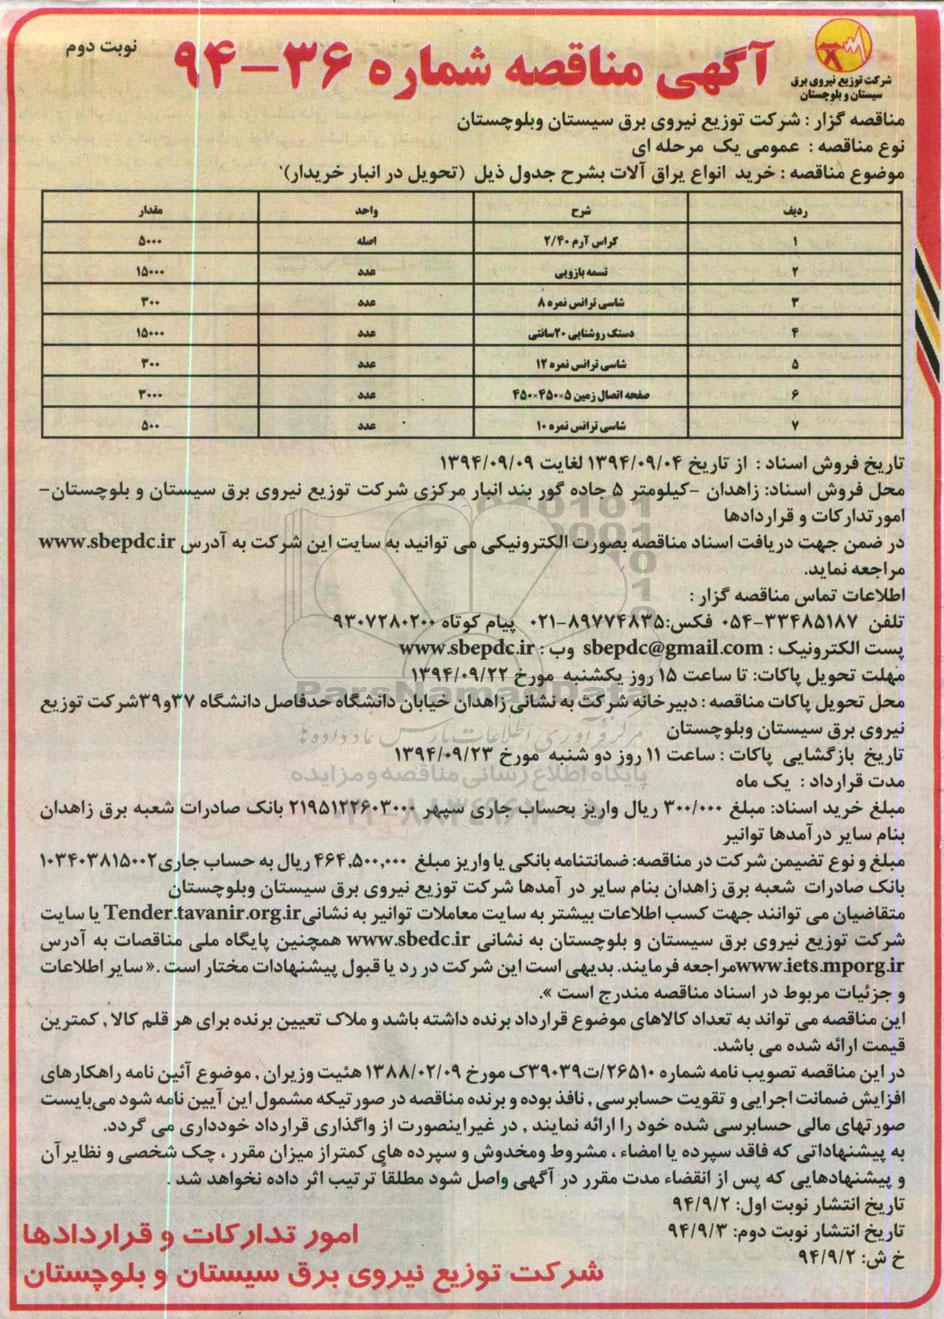 نوبت دوم
آگهی مناقصه شماره ۳۶-۹۴
شرکت توزیع نیروی برق
سیستان و بلوچستان
مناقصه گزار : شرکت توزیع نیروی برق سیستان وبلوچستان
نوع مناقصه : عمومی یک مرحله ای
موضوع مناقصه : خرید انواع یراق آلات بشرح جدول ذیل (تحویل در انبار خریدار)
ردیف شرح واحد مقدار
۱ کراس آرم ۲/۴۰ اصله ۵۰۰۰
۲ تسمه بازویی عدد ۱۵۰۰۰
۳ شاسی ترانس نمره ۸ عدد ۳۰۰
۴ دستک روشنایی ۲۰سانتی عدد ۱۵۰۰۰
۵ شاسی ترانس نمره ۱۲ عدد ۳۰۰
۶ صفحه اتصال زمین ۵×۴۵۰×۴۵۰ عدد ۳۰۰۰
۷ شاسی ترانس نمره ۱۰ عدد ۵۰۰
تاریخ فروش اسناد : از تاریخ ۱۳۹۴/۰۹/۰۴ لغایت ۱۳۹۴/۰۹/۰۹
محل فروش اسناد: زاهدان -کیلومتر ۵ جاده گور بند انبار مرکزی شرکت توزیع نیروی برق سیستان و بلوچستان-
امورتدارکات و قراردادها
در ضمن جهت دریافت اسناد مناقصه بصورت الکترونیکی می توانید به سایت این شرکت به آدرس www.sbepdc.ir
مراجعه نماید.
اطلاعات تماس مناقصه گزار :
تلفن ۳۳۴۸۵۱۸۷-۰۵۴ فکس:۸۹۷۷۴۸۳۵-۰۲۱ پیام کوتاه ۹۳۰۷۲۸۰۲۰۰
پست الکترونیک : sbepdc@gmail.com وب : www.sbepdc.ir
مهلت تحویل پاکات: تا ساعت ۱۵ روز یکشنبه مورخ ۱۳۹۴/۰۹/۲۲
محل تحویل پاکات مناقصه : دبیرخانه شرکت به نشانی زاهدان خیابان دانشگاه حدفاصل دانشگاه ۳۷و۳۹شرکت توزیع
نیروی برق سیستان وبلوچستان
تاریخ بازگشایی پاکات : ساعت ۱۱ روز دو شنبه مورخ ۱۳۹۴/۰۹/۲۳
مدت قرارداد : یک ماه
مبلغ خرید اسناد: مبلغ ۳۰۰/۰۰۰ ریال واریز بحساب جاری سپهر ۲۱۹۵۱۲۲۶۰۳۰۰۰ بانک صادرات شعبه برق زاهدان
بنام سایر درآمدها توانیر
مبلغ و نوع تضیمن شرکت در مناقصه: ضمانتنامه بانکی یا واریز مبلغ ۴۶۴,۵۰۰,۰۰۰ ریال به حساب جاری۱۰۳۴۰۳۸۱۵۰۰۲
بانک صادرات شعبه برق زاهدان بنام سایر در آمدها شرکت توزیع نیروی برق سیستان وبلوچستان
متقاضیان می توانند جهت کسب اطلاعات بیشتر به سایت معاملات توانیر به نشانیTender.tavanir.org.ir یا سایت
شرکت توزیع نیروی برق سیستان و بلوچستان به نشانی www.sbedc.ir همچنین پایگاه ملی مناقصات به آدرس
www.iets.mporg.irمراجعه فرمایند. بدیهی است این شرکت در رد یا قبول پیشنهادات مختار است .« سایر اطلاعات
و جزئیات مربوط در اسناد مناقصه مندرج است ».
این مناقصه می تواند به تعداد کالاهای موضوع قرارداد برنده داشته باشد و ملاک تعیین برنده برای هر قلم کالا , کمترین
قیمت ارائه شده می باشد.
در این مناقصه تصویب نامه شماره ۲۶۵۱۰/ت۳۹۰۳۹ک مورخ ۱۳۸۸/۰۲/۰۹ هئیت وزیران , موضوع آئین نامه راهکارهای
افزایش ضمانت اجرایی و تقویت حسابرسی , نافذ بوده و برنده مناقصه در صورتیکه مشمول این آیین نامه شود می‌بایست
صورتهای مالی حسابرسی شده خود را ارائه نمایند , در غیراینصورت از واگذاری قرارداد خودداری می گردد.
به پیشنهاداتی که فاقد سپرده یا امضاء ، مشروط ومخدوش و سپرده های کمتراز میزان مقرر ، چک شخصی و نظایرآن
و پیشنهادهایی که پس از انقضاء مدت مقرر در آگهی واصل شود مطلقاً ترتیب اثر داده نخواهد شد .
تاریخ انتشار نوبت اول: ۹۴/۹/۲
تاریخ انتشار نوبت دوم: ۹۴/۹/۳
خ ش: ۹۴/۹/۲
امور تدارکات و قراردادها
شرکت توزیع نیروی برق سیستان و بلوچستان
ParsNamadData
مرکز فرآوری اطلاعات پارس نماد داده‌ها
پایگاه اطلاع رسانی مناقصه و مزایده